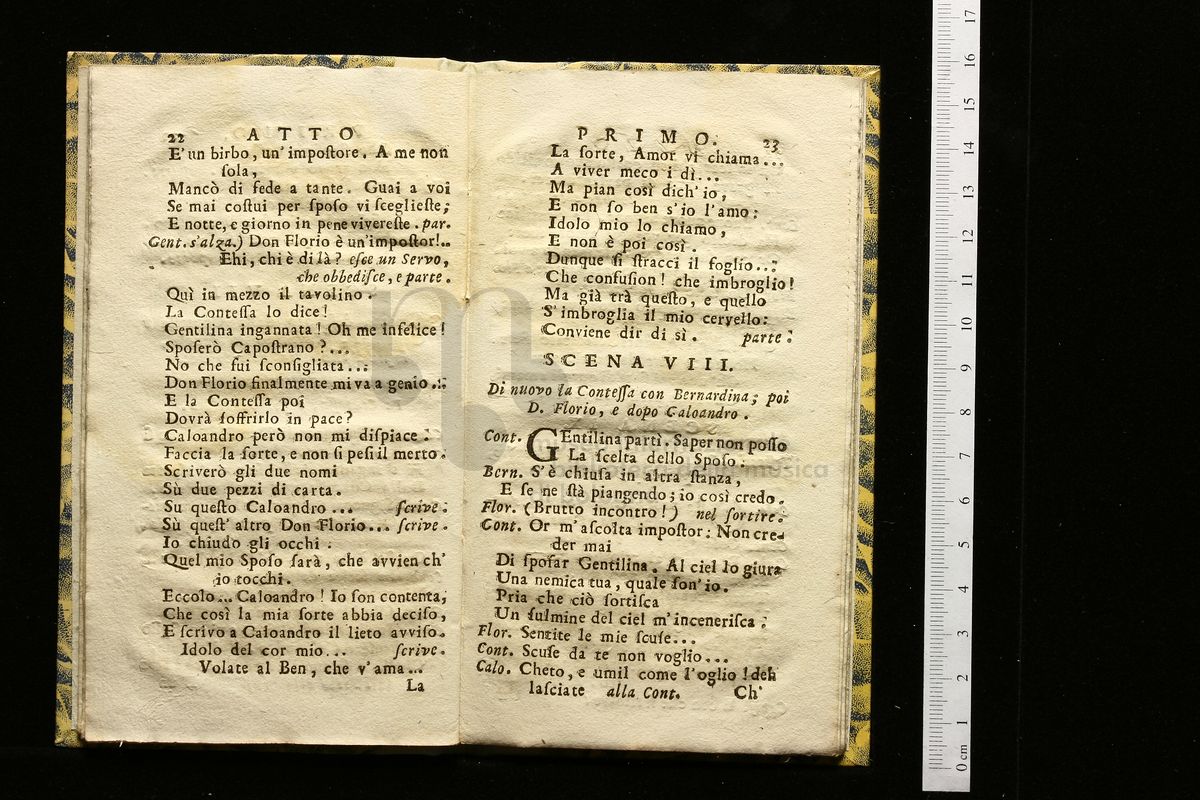 22 ATTO
E' un birbo, un' impoſtore. A me non
ſola,
Mancò di fede a tante. Guai a voi
Se mai coſtui per ſpoſo vi ſceglieſte;
E notte, e giorno in pene vivereſte. par.
Gent. s'alza.) Don Florio è un'impoſtor!..
Ehi, chi è di là? eſce un Servo,
che obbediſce, e parte.
Quì in mezzo il tavolino.
La Conteſſa lo dice!
Gentilina ingannata! Oh me infelice!
Spoſerò Capoſtrano?...
No che fui ſconſigliata...
Don Florio finalmente mi va a genio...
E la Conteſſa poi
Dovrà ſoffrirlo in pace?
Caloandro però non mi diſpiace.
Faccia la ſorte, e non ſi peſi il merto.
Scriverò gli due nomi
Sù due pezzi di carta.
Su queſto Caloandro... ſcrive.
Sù queſt' altro Don Florio... ſcrive.
Io chiudo gli occhi.
Quel mio Spoſo ſarà, che avvien ch'
io tocchi.
Eccolo... Caloandro! Io ſon contenta,
Che così la mia ſorte abbia deciſo,
E ſcrivo a Caloandro il lieto avviſo.
Idolo del cor mio... ſcrive.
Volate al Ben, che v'ama...
La
PRIMO. 23
La ſorte, Amor vi chiama...
A viver meco i dì...
Ma pian così dich' io,
E non ſo ben s'io l'amo:
Idolo mio lo chiamo,
E non è poi così.
Dunque ſi ſtracci il foglio...
Che confuſion! che imbroglio!
Ma già trà queſto, e quello
S' imbroglia il mio cervello:
Conviene dir di sì. parte.
SCENA VIII.
Di nuovo la Conteſſa con Bernardina; poi
D. Florio, e dopo Caloandro.
Cont. GEntilina partì. Saper non poſſo
La ſcelta dello Spoſo.
Bern. S'è chiuſa in altra ſtanza,
E ſe ne ſtà piangendo; io così credo.
Flor. (Brutto incontro!) nel ſortire.
Cont. Or m'aſcolta impoſtor: Non cre-
der mai
Di ſpoſar Gentilina. Al ciel lo giura
Una nemica tua, quale ſon' io.
Pria che ciò ſortiſca
Un fulmine del ciel m'inceneriſca.
Flor. Sentite le mie ſcuſe...
Cont. Scuſe da te non voglio...
Calo. Cheto, e umil come l'oglio! deh
laſciate alla Cont. Ch'
0 cm 1 2 3 4 5 6 7 8 9 10 11 12 13 14 15 16 17